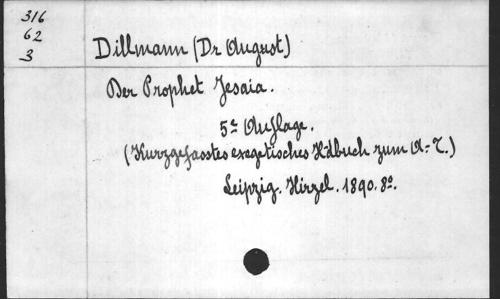 316
62
3
Dillmann (Dr August)
Der Prophet Jesaia.
5e Auflage.
(Kurzgefasstes exegetisches Hdbuch zum A.-T.)
Leipzig. Hirzel. 1890. 8o.